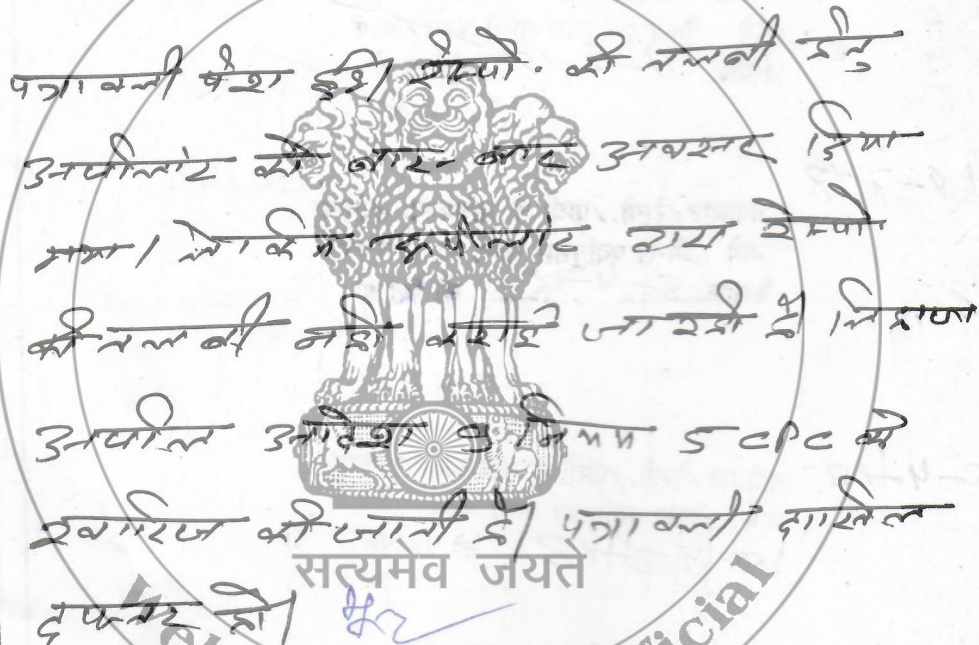 पत्रावली पेश हुई। रेस्पो. की तलबी हेतु
अपीलांट को बार-बार अवसर दिया
गया। लेकिन अपीलांट द्वारा रेस्पो
की तलबी नहीं कराई जा रही है। लिहाजा
अपील आदेश 9 नियम 5 CPC में
खारिज की जाती है। पत्रावली दाखिल
सत्यमेव जयते
दफ्तर हो।